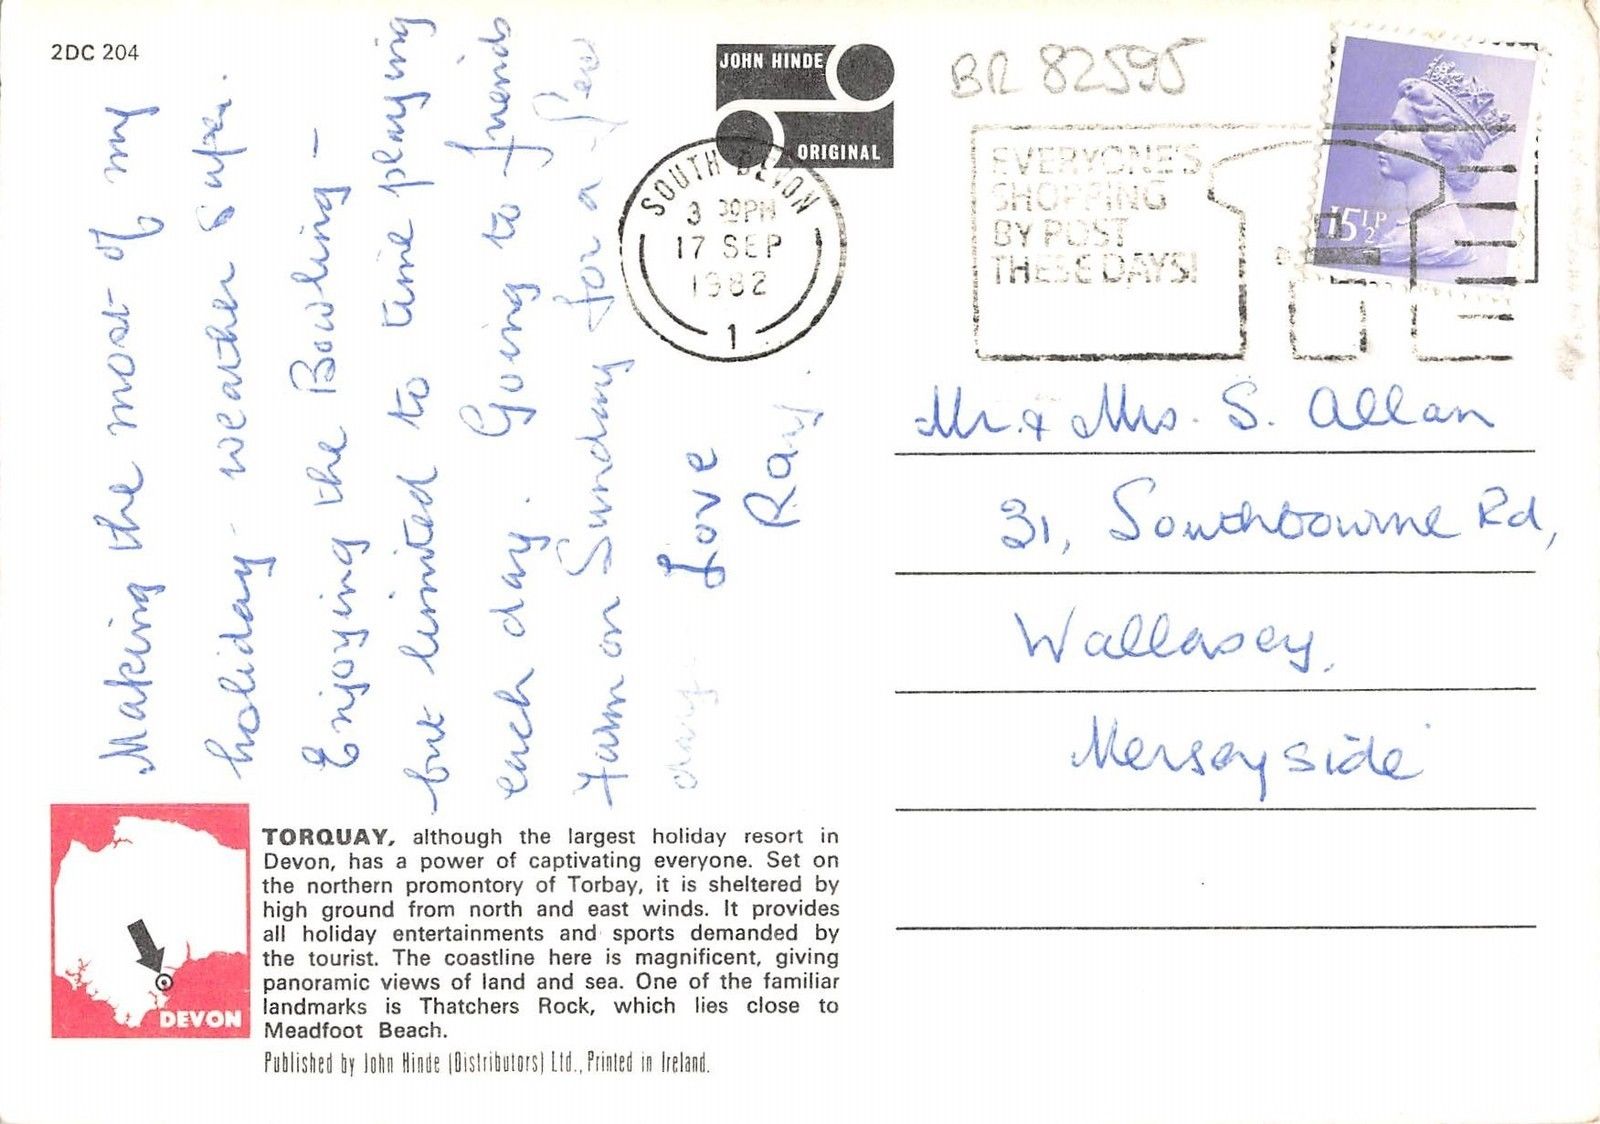 2DC 204
JOHN HINDE
ORIGINAL
BR 82595
SOUTH DEVON
3 30PM
17 SEP
1982
1
EVERYONE'S
SHOPPING
BY POST
THESE DAYS!
15½P
Making the most of my
holiday - weather super.
Enjoying the Bowling -
but limited to time playing
each day. Going to friends
Farm on Sunday for a few
days.
Love
Ray.
Mr. & Mrs. S. Allan
31, Southbourne Rd,
Wallasey,
Merseyside
DEVON
TORQUAY, although the largest holiday resort in
Devon, has a power of captivating everyone. Set on
the northern promontory of Torbay, it is sheltered by
high ground from north and east winds. It provides
all holiday entertainments and sports demanded by
the tourist. The coastline here is magnificent, giving
panoramic views of land and sea. One of the familiar
landmarks is Thatchers Rock, which lies close to
Meadfoot Beach.
Published by John Hinde (Distributors) Ltd., Printed in Ireland.